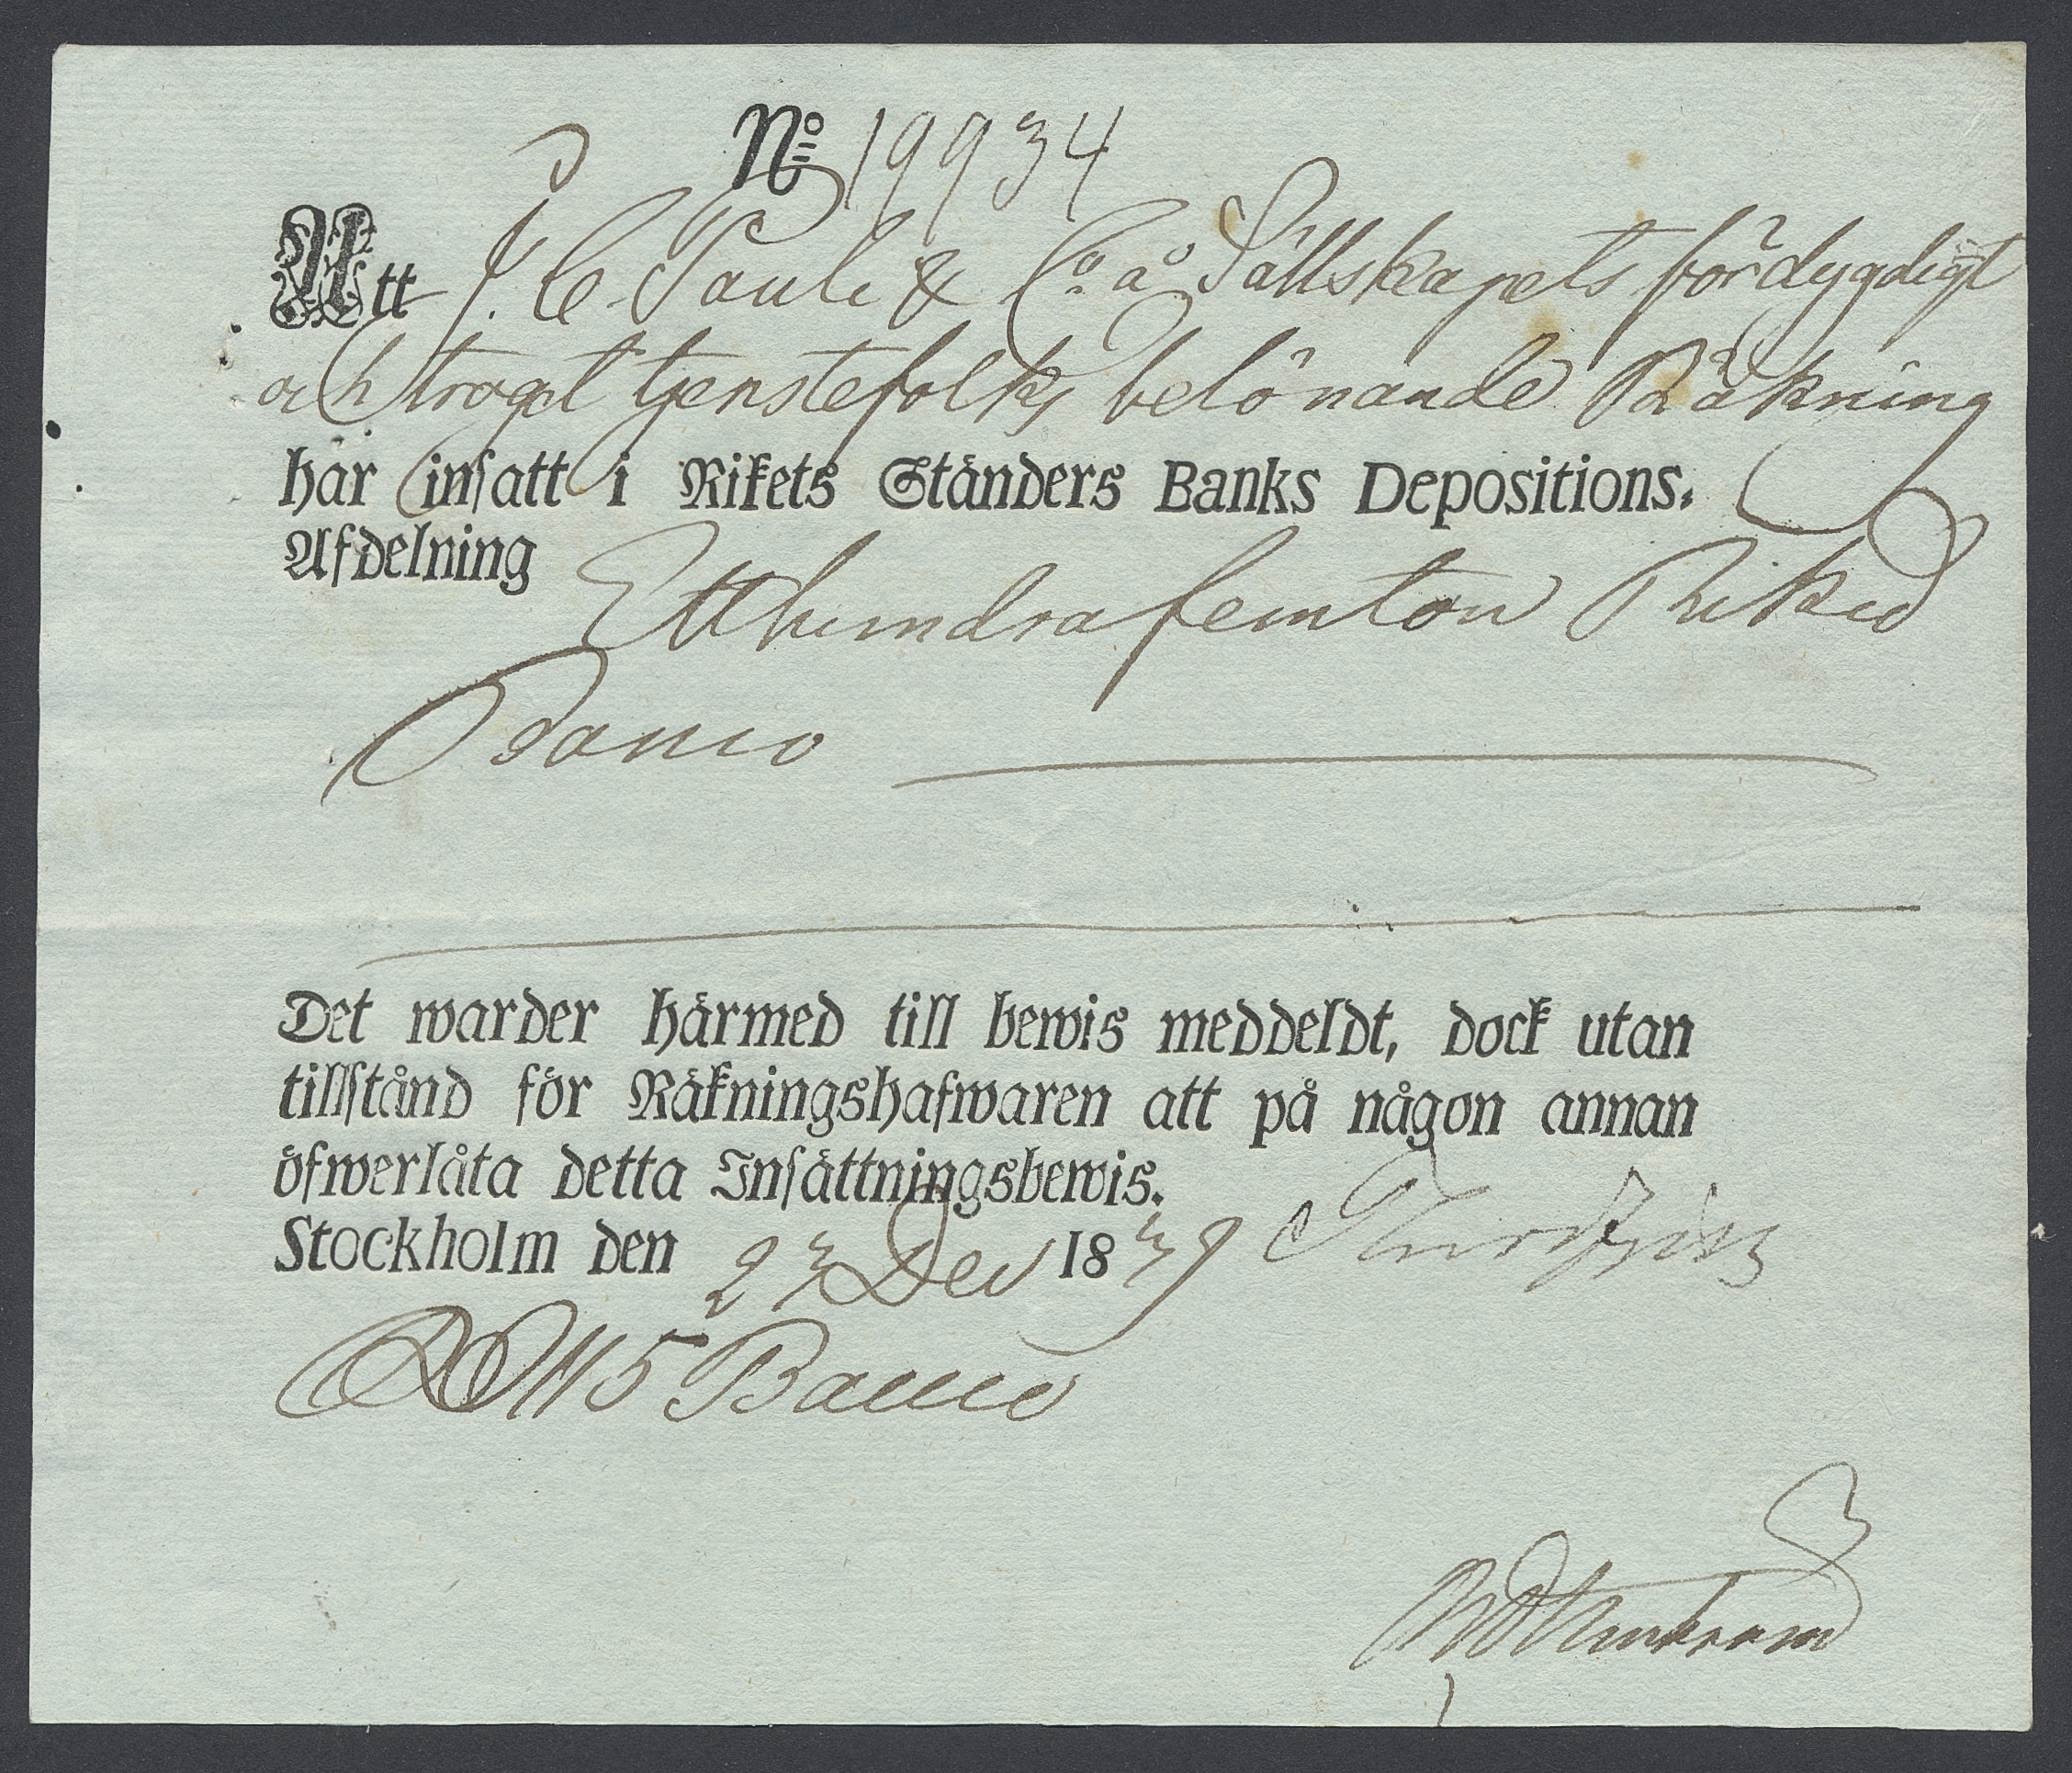 No 19934
Att J. C. Pauli & Co. å Sällskapets för dygdigt
och troget tjenstefolks belönande Räkning
har insatt i Rikets Ständers Banks Depositions-
Afdelning Etthundrafemton Riksd
Banco
Det warder härmed till bewis meddeldt, dock utan
tillstånd för Räkningshafwaren att på någon annan
öfwerlåta detta Insättningsbewis.
Stockholm den 27 Dec 1839
RD 115 Banco